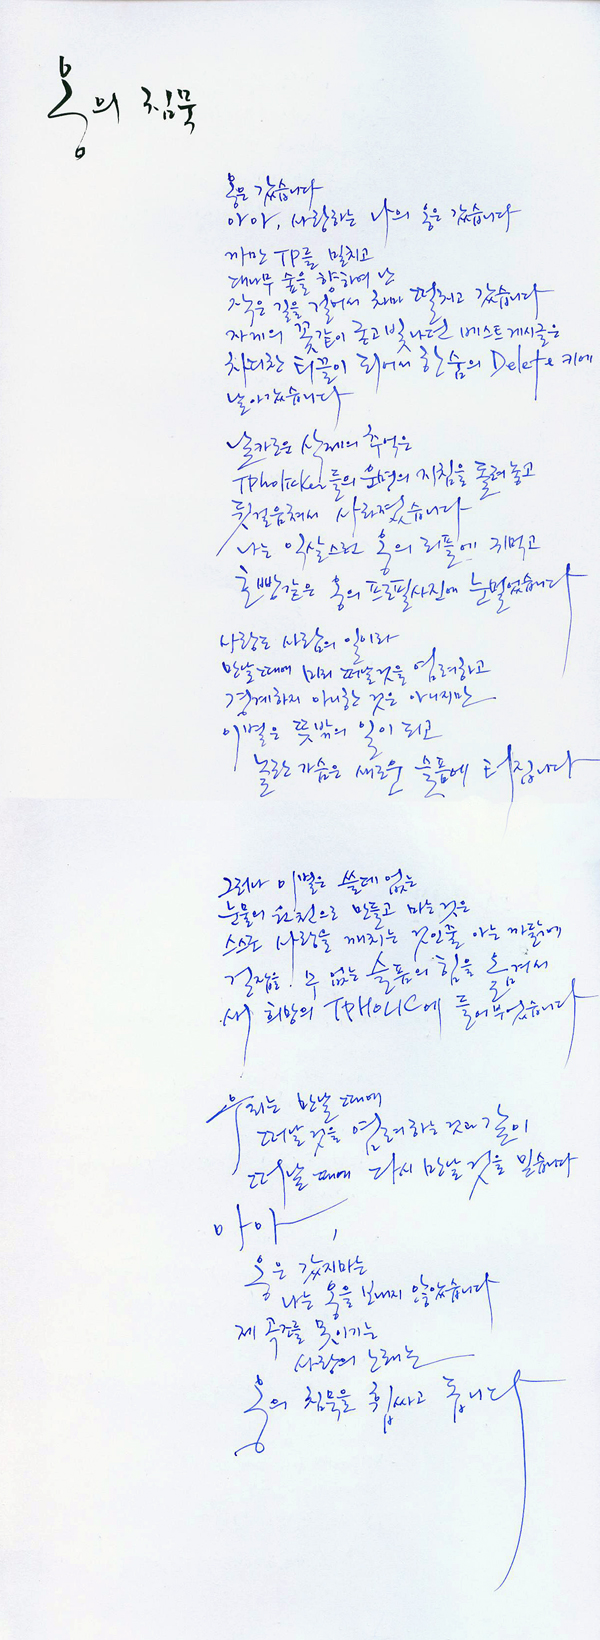 옹의 침묵
옹은 갔습니다
아아, 사랑하는 나의 옹은 갔습니다
까만 TP를 밀치고
대나무 숲을 향하여 난
작은 길을 걸어서 차마 떨치고 갔습니다
자게의 꽃같이 굳고 빛나던 베스트게시글은
차디찬 티끌이 되어서 한숨의 Delete 키에
날아갔습니다
날카로운 삭제의 추억은
TPholicker들의 운명의 지침을 돌려놓고
뒷걸음쳐서 사라졌습니다
나는 익살스런 옹의 리플에 귀먹고
호빵같은 옹의 프로필사진에 눈멀었습니다
사랑도 사람의 일이라
만날 때에 미리 떠날 것을 염려하고
경계하지 아니한 것은 아니지만
이별은 뜻밖의 일이 되고
놀란 가슴은 새로운 슬픔에 터집니다
그러나 이별은 쓸데 없는
눈물의 원천으로 만들고 마는 것은
스스로 사랑을 깨치는 것인줄 아는 까닭에
걷잡을 수 없는 슬픔의 힘을 옮겨서
새 희망의 TPHOLIC에 들어부었습니다
우리는 만날 때에
떠날 것을 염려하는 것과 같이
떠날 때에 다시 만날 것을 믿습니다
아아,
옹은 갔지마는
나는 옹을 보내지 않았습니다
제 곡조를 못 이기는
사랑의 노래는
옹의 침묵을 휩싸고 돕니다